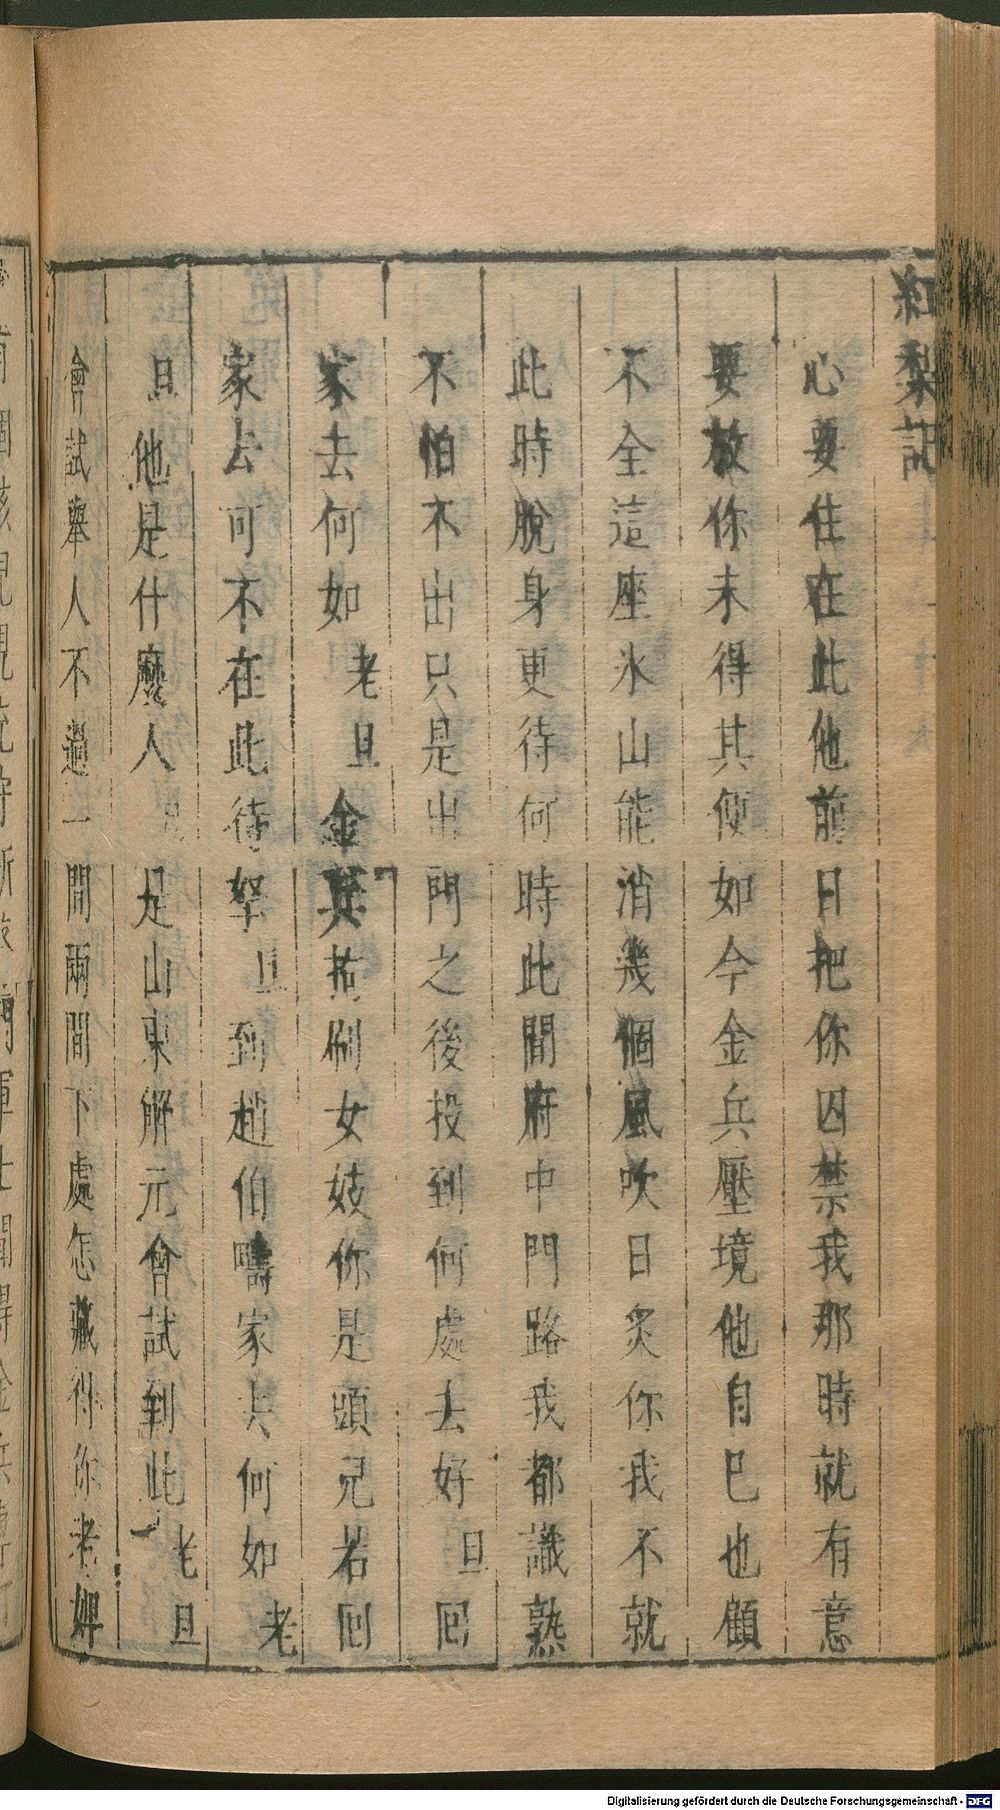 紅梨記
心要住在此他前日把你囚禁我那時就有意
要放你未得其便如今金兵壓境他自巳也顧
不全這座氷山能消幾個風吹日炙你我不就
此時脫身更待何時此間府中門路我都識熟
不怕不出只是出門之後投到何處去好旦回
家去何如老旦金兵括刷女妓你是頭兒若回
家去可不在此待拏旦到趙伯疇家去何如老
旦他是什麼人旦是山東解元會試到此老旦
會試舉人不過一間兩間下處怎藏得你老婢
Digitalisierung gefördert durch die Deutsche Forschungsgemeinschaft - DFG